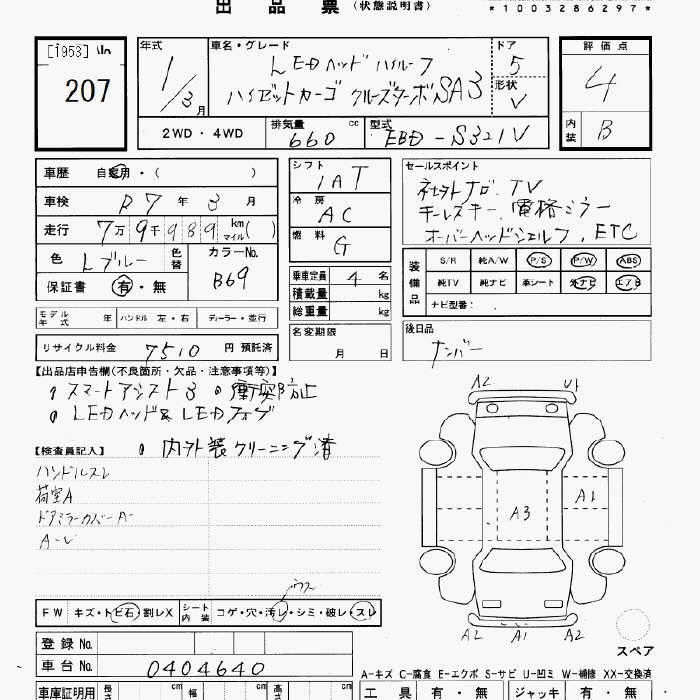 出品票 (状態説明書)
*10032862 97*
[1953] Iln
207
年式 車名・グレード ドア 評価点
LEDヘッド ハイルーフ
1/3月 ハイゼットカーゴ クルーズターボSAⅢ 5 4
形状 V
2WD・4WD 排気量 660 cc 型式 EBD-S321V 内装 B
車歴 自家用・( )
車検 R7 年 3 月
走行 7万9千989 km マイル( )
色 Lブルー 色替 カラーNo. B69
保証書 有・無
モデル年式 年 ハンドル 左・右 ディーラー・並行
リサイクル料金 7510 円 預託済
シフト IAT
冷房 AC
燃料 G
乗車定員 4 名
積載量 kg
総重量 kg
名変期限 月 日
セールスポイント
社外ナビ、TV
キーレスキー、電格ミラー
オーバーヘッドシェルフ、ETC
装備品 S/R 純A/W P/S P/W ABS
純TV 純ナビ 革シート 外ナビ エアB
ナビ型番:
後日品
ナンバー
【出品店申告欄(不良箇所・欠品・注意事項等)】
スマートアシスト3 衝突防止
LEDヘッド&LEDフォグ
内外装クリーニング済
【検査員記入】
ハンドルスレ
荷室A
ドアミラーカバーA
A-U
A2 U1
A3 A1
A2 A1 A2
スペア
FW キズ・トビ石・割レX シート内装 コゲ・穴・汚レ・シミ・破レ・スレ
登録No.
車台No. 0404640
A-キズ C-腐食 E-エクボ S-サビ U-凹ミ W-補修 XX-交換済
車庫証明用 長さ cm 幅 cm 高さ cm 工具 有・無 ジャッキ 有・無